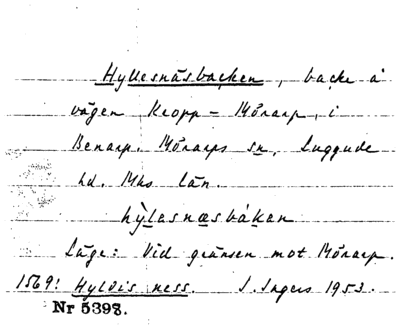 Hyllesnäsbacken, backe å
vägen Kropp - Mörarp, i
Benarp. Mörarps sn, Luggude
hd. Mhs län.
hỳlasnæsbákan
Läge: Vid gränsen mot Mörarp.
1569: Hyldis ness. I. Ingers 1953.
Nr 5398.